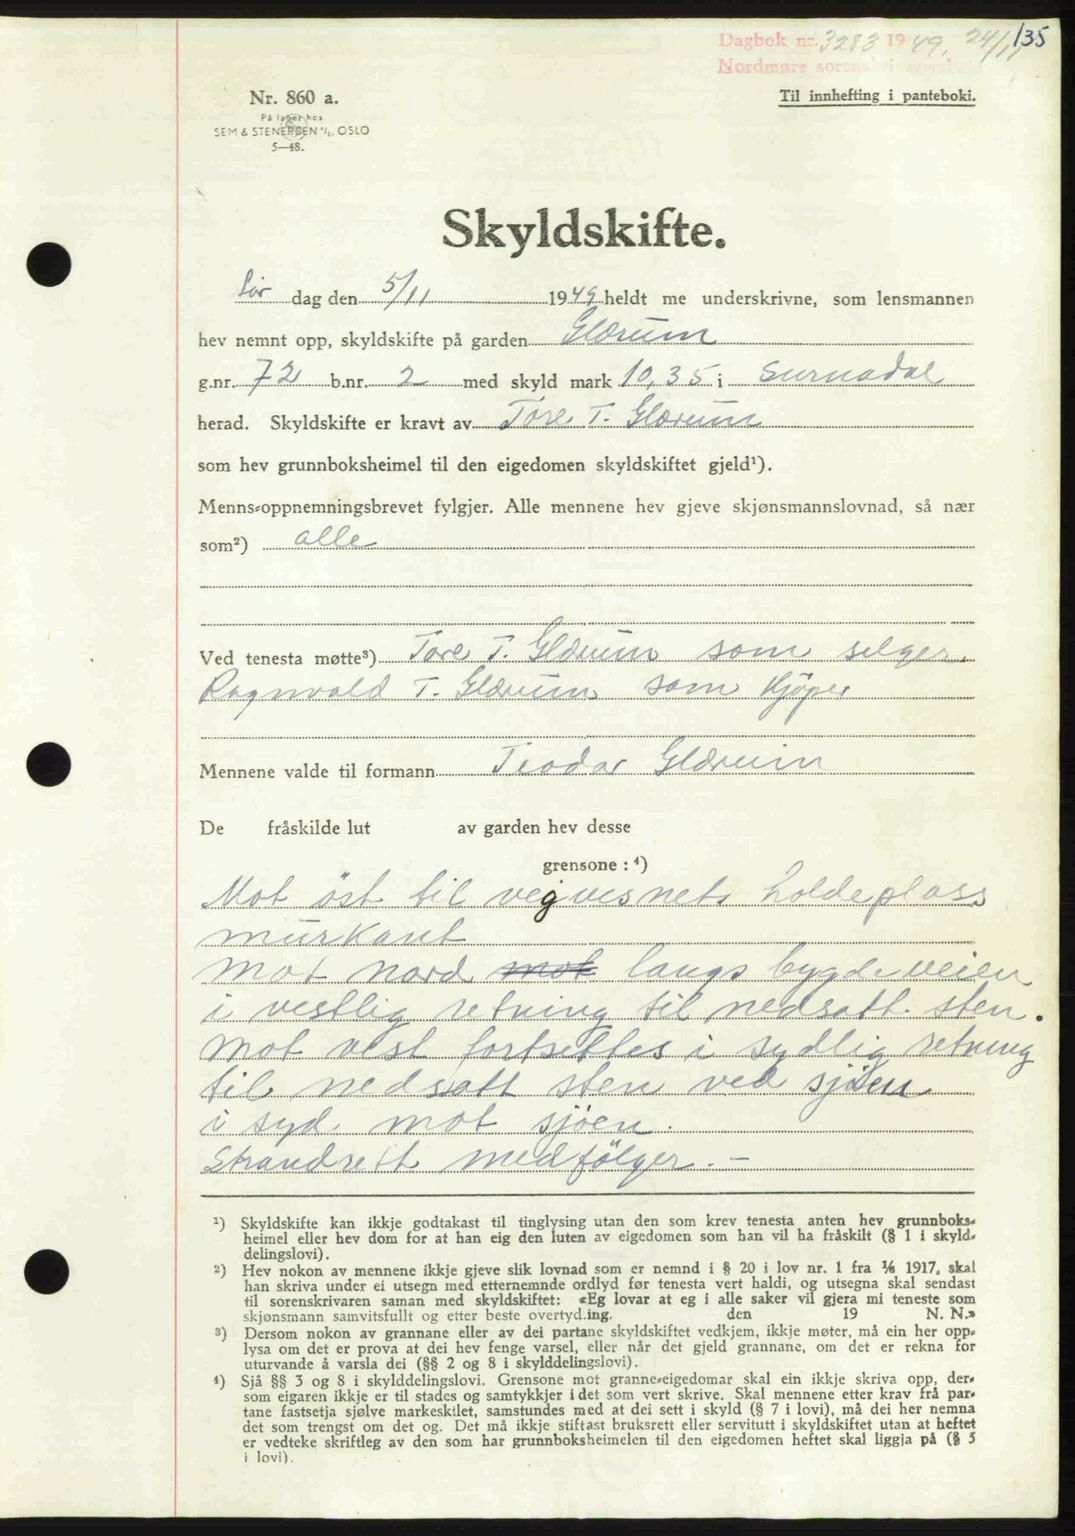 Dagbok nr. 3283 1949, 24/11 135
Nordmøre sorenskriverembete
Nr. 860 a.
På lager hos
SEM & STENERSEN A/S, OSLO
5—48.
Til innhefting i panteboki.
Skyldskifte.
Lør dag den 5/11 1949 heldt me underskrivne, som lensmannen
hev nemnt opp, skyldskifte på garden Glærum
g.nr. 72 b.nr. 2 med skyld mark 10,35 i Surnadal
herad. Skyldskifte er kravt av Tore T. Glærum
som hev grunnboksheimel til den eigedomen skyldskiftet gjeld¹).
Menns-oppnemningsbrevet fylgjer. Alle mennene hev gjeve skjønsmannslovnad, så nær
som²) alle
Ved tenesta møtte³) Tore T. Glærum som selger.
Ragnvald T. Glærum som kjöper
Mennene valde til formann Teodor Glærum
De fråskilde lut av garden hev desse
grensone : ⁴)
Mot öst til vegvesnets holdeplass
murkant
mot nord mot langs bygdeveien
i vestlig retning til nedsatt sten.
mot vest fortsettes i sydlig retning
til nedsatt sten ved sjöen
i syd mot sjöen.
Strandrett medfölger. —
¹) Skyldskifte kan ikkje godtakast til tinglysing utan den som krev tenesta anten hev grunnboks-
heimel eller hev dom for at han eig den luten av eigedomen som han vil ha fråskilt (§ 1 i skyld-
delingslovi).
²) Hev nokon av mennene ikkje gjeve slik lovnad som er nemnd i § 20 i lov nr. 1 fra ⅙ 1917, skal
han skriva under ei utsegn med etternemnde ordlyd før tenesta vert haldi, og utsegna skal sendast
til sorenskrivaren saman med skyldskiftet: «Eg lovar at eg i alle saker vil gjera mi teneste som
skjønsmann samvitsfullt og etter beste overtyd.ing. den 19 N. N.»
³) Dersom nokon av grannane eller av dei partane skyldskiftet vedkjem, ikkje møter, må ein her opp-
lysa om det er prova at dei hev fenge varsel, eller når det gjeld grannane, om det er rekna for
uturvande å varsla dei (§§ 2 og 8 i skylddelingslovi).
⁴) Sjå §§ 3 og 8 i skylddelingslovi. Grensone mot granne-eigedomar skal ein ikkje skriva opp, der-
som eigaren ikkje er til stades og samtykkjer i det som vert skrive. Skal mennene etter krav frå par-
tane fastsetja sjølve markeskilet, samstundes med at dei sett i skyld (§ 7 i lovi), må dei her nemna
det som trengst om det og. Det må ikkje stiftast bruksrett eller servitutt i skyldskiftet utan at heftet
er vedteke skriftleg av den som har grunnboksheimelen til den eigedomen heftet skal liggja på (§ 5
i lovi).